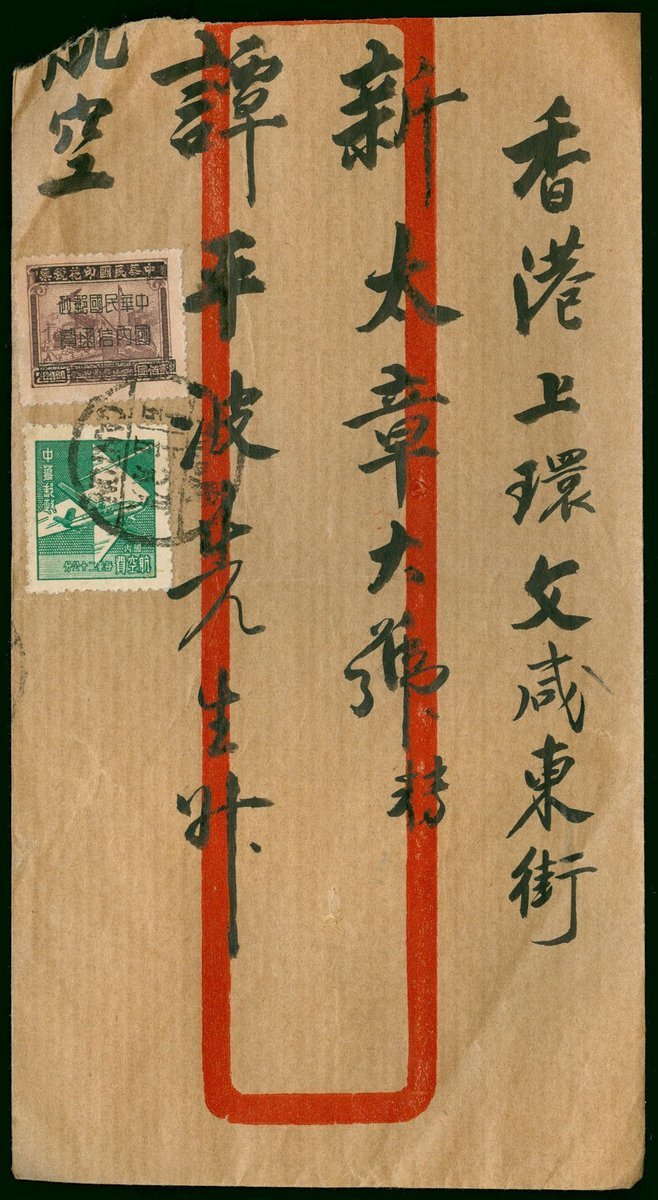 香港上環文咸東街
新太章大號轉
譚平波先生升
航空
中華民國印花稅票
中華民國郵政
國內信函費
中華郵政
國內
航空費